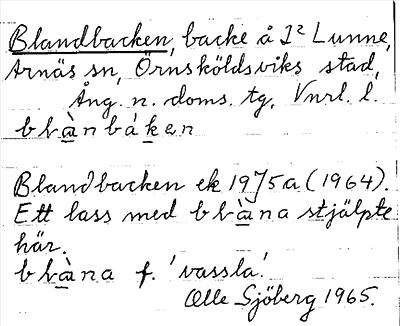 Blandbacken, backe å I² Lunne,
Arnäs sn, Örnsköldsviks stad,
Ång. n. doms. tg, Vnrl. l.
blànbáken
Blandbacken ek 19J5a (1964).
Ett lass med blàna stjälpte
här.
blàna f. 'vassla'.
Olle Sjöberg 1965.